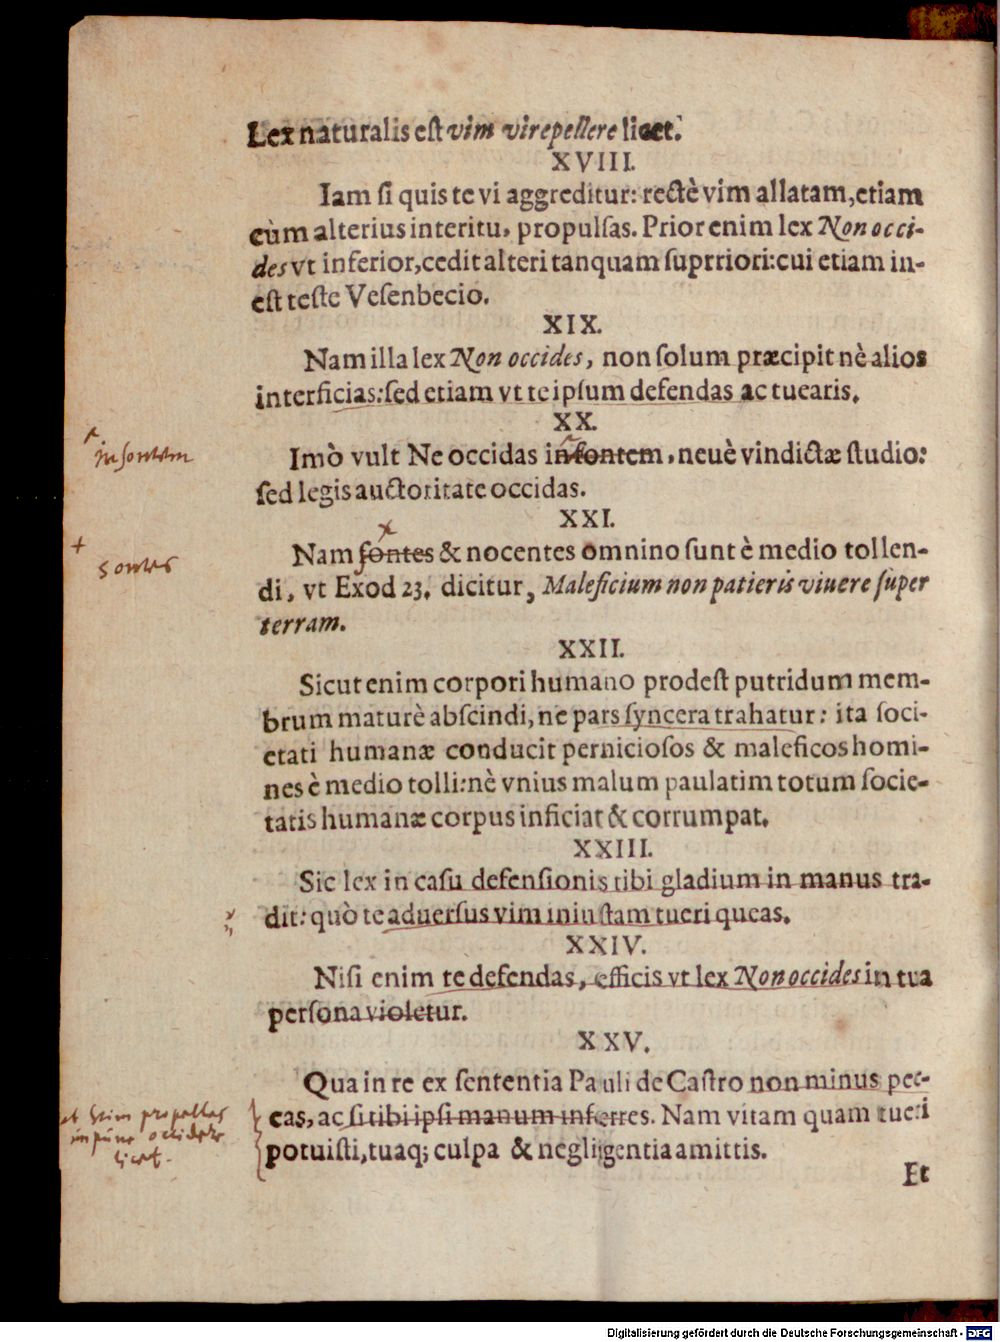 Lex naturalis est vim vi repellere licet.
XVIII.
Iam ſi quis te vi aggreditur: rectè vim allatam, etiam
cùm alterius interitu, propulſas. Prior enim lex Non occi-
des vt inferior, cedit alteri tanquam ſuprriori: cui etiam in-
eſt teſte Veſenbecio.
XIX.
Nam illa lex Non occides, non ſolum præcipit nè alios
interficias: ſed etiam vt te ipſum defendas ac tuearis.
XX.
insontem
Imò vult Ne occidas inſontem, neuè vindictæ ſtudio:
ſed legis auctoritate occidas.
XXI.
+ sontes
Nam ſontes & nocentes omnino ſunt è medio tollen-
di, vt Exod 23. dicitur, Maleficium non patieris viuere ſuper
terram.
XXII.
Sicut enim corpori humano prodeſt putridum mem-
brum maturè abſcindi, ne pars ſyncera trahatur: ita ſoci-
etati humanæ conducit pernicioſos & maleficos homi-
nes è medio tolli: nè vnius malum paulatim totum ſocie-
tatis humanæ corpus inficiat & corrumpat.
XXIII.
Sic lex in caſu defenſionis tibi gladium in manus tra-
dit: quò te aduerſus vim iniuſtam tueri queas.
XXIV.
Niſi enim te defendas, efficis vt lex Non occides in tua
perſona violetur.
XXV.
Qua in re ex ſententia Pauli de Caſtro non minus pec-
cas, ac ſi tibi ipſi manum inferres. Nam vitam quam tueri
potuiſti, tuaq; culpa & negligentia amittis.
impune occidere
licet.
Et
Digitalisierung gefördert durch die Deutsche Forschungsgemeinschaft - DFG